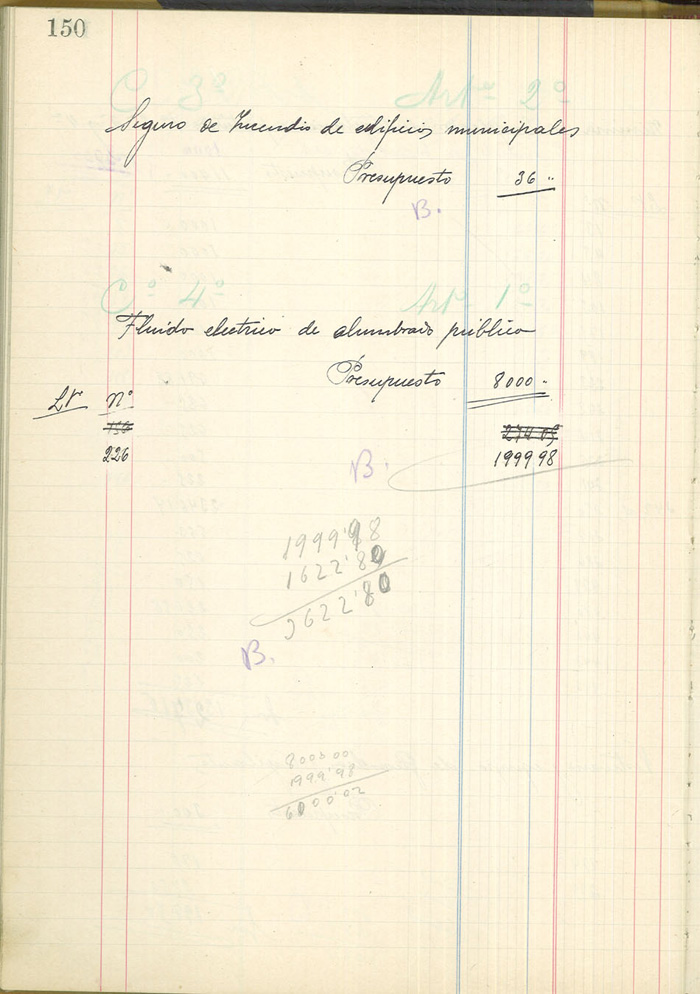 150
C 3º Artº 2º
Seguro de Incendio de edificios municipales
Presupuesto 36 "
B.
Cº 4º Artº 1º
Fluido electrico de alumbrado público
Presupuesto 8000 "
Nº
226 1999 98
B.
1999'98
1622'80
3622'80
B.
8000 00
1999'98
6000'02